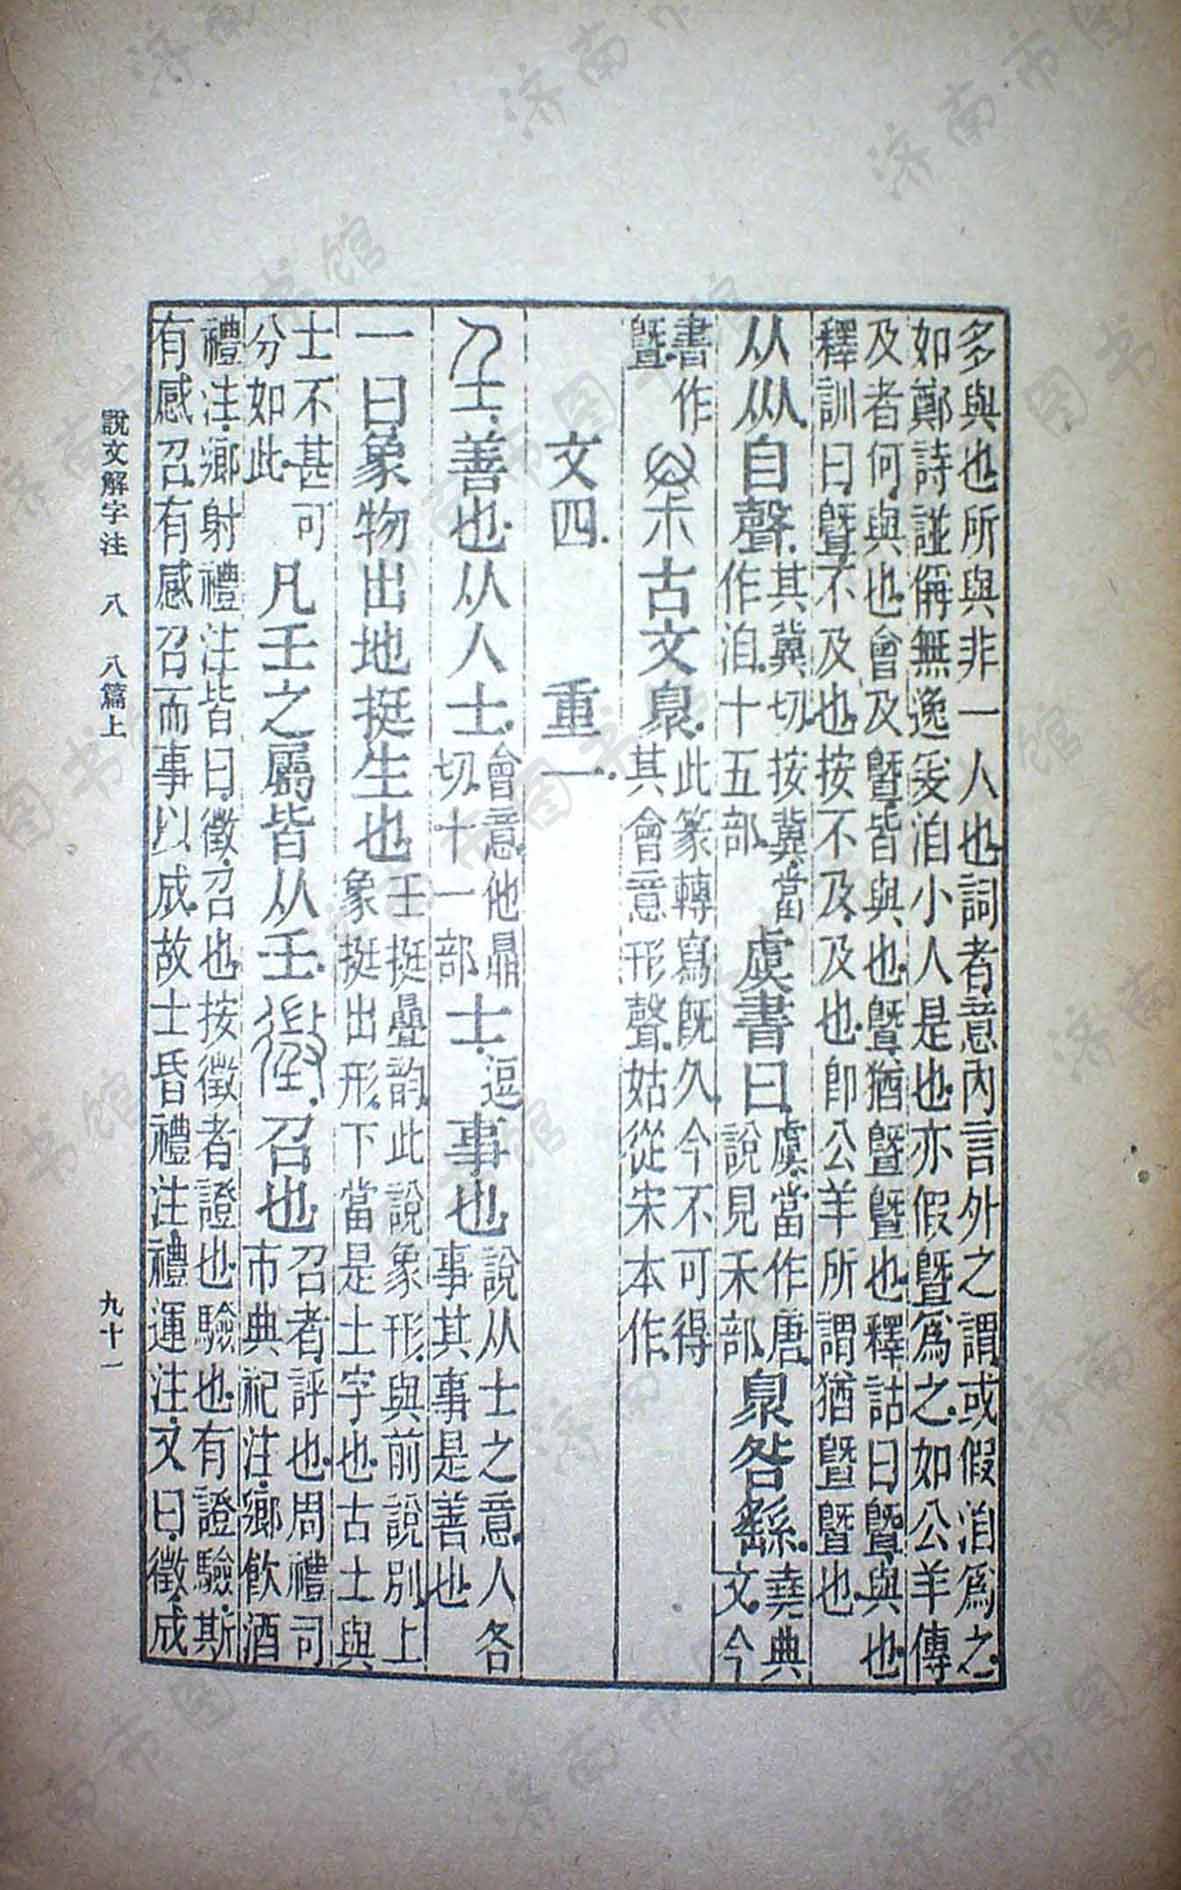 多與也所與非一人也詞者意內言外之謂或假洎爲之
如鄭詩譜偁無逸爰洎小人是也亦假曁爲之如公羊傳
及者何與也會及曁皆與也曁猶曁曁也釋詁曰曁與也
釋訓曰曁不及也按不及及也卽公羊所謂猶曁曁也
从㐺自聲其冀切按冀當作洎十五部虞書曰虞當作唐說見禾部㒫咎繇堯典文今
書作曁古文㒫此篆轉寫旣久今不可得其會意形聲姑從宋本作
文四 重一
𡈼善也从人士會意他鼎切十一部士逗事也說从士之意人各事其事是善也
一曰象物出地挺生也𡈼挺疊韵此說象形與前說別上象挺出形下當是土字也古土與
士不甚可分如此凡𡈼之屬皆从𡈼徵召也召者評也周禮司市典祀注鄉飮酒
禮注鄉射禮注皆曰徵召也按徵者證也驗也有證驗斯
有感召有感召而事以成故士昏禮注禮運注又曰徵成
說文解字注 八 八篇上 九十一
济南市图书馆